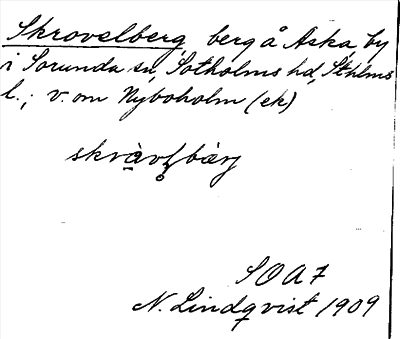 Skrovelberg, berg å Aska by
i Sorunda sn, Sotholms hd, Sthlms
l.; v. om Nyboholm (ek)
SOA7
N. Lindqvist 1909